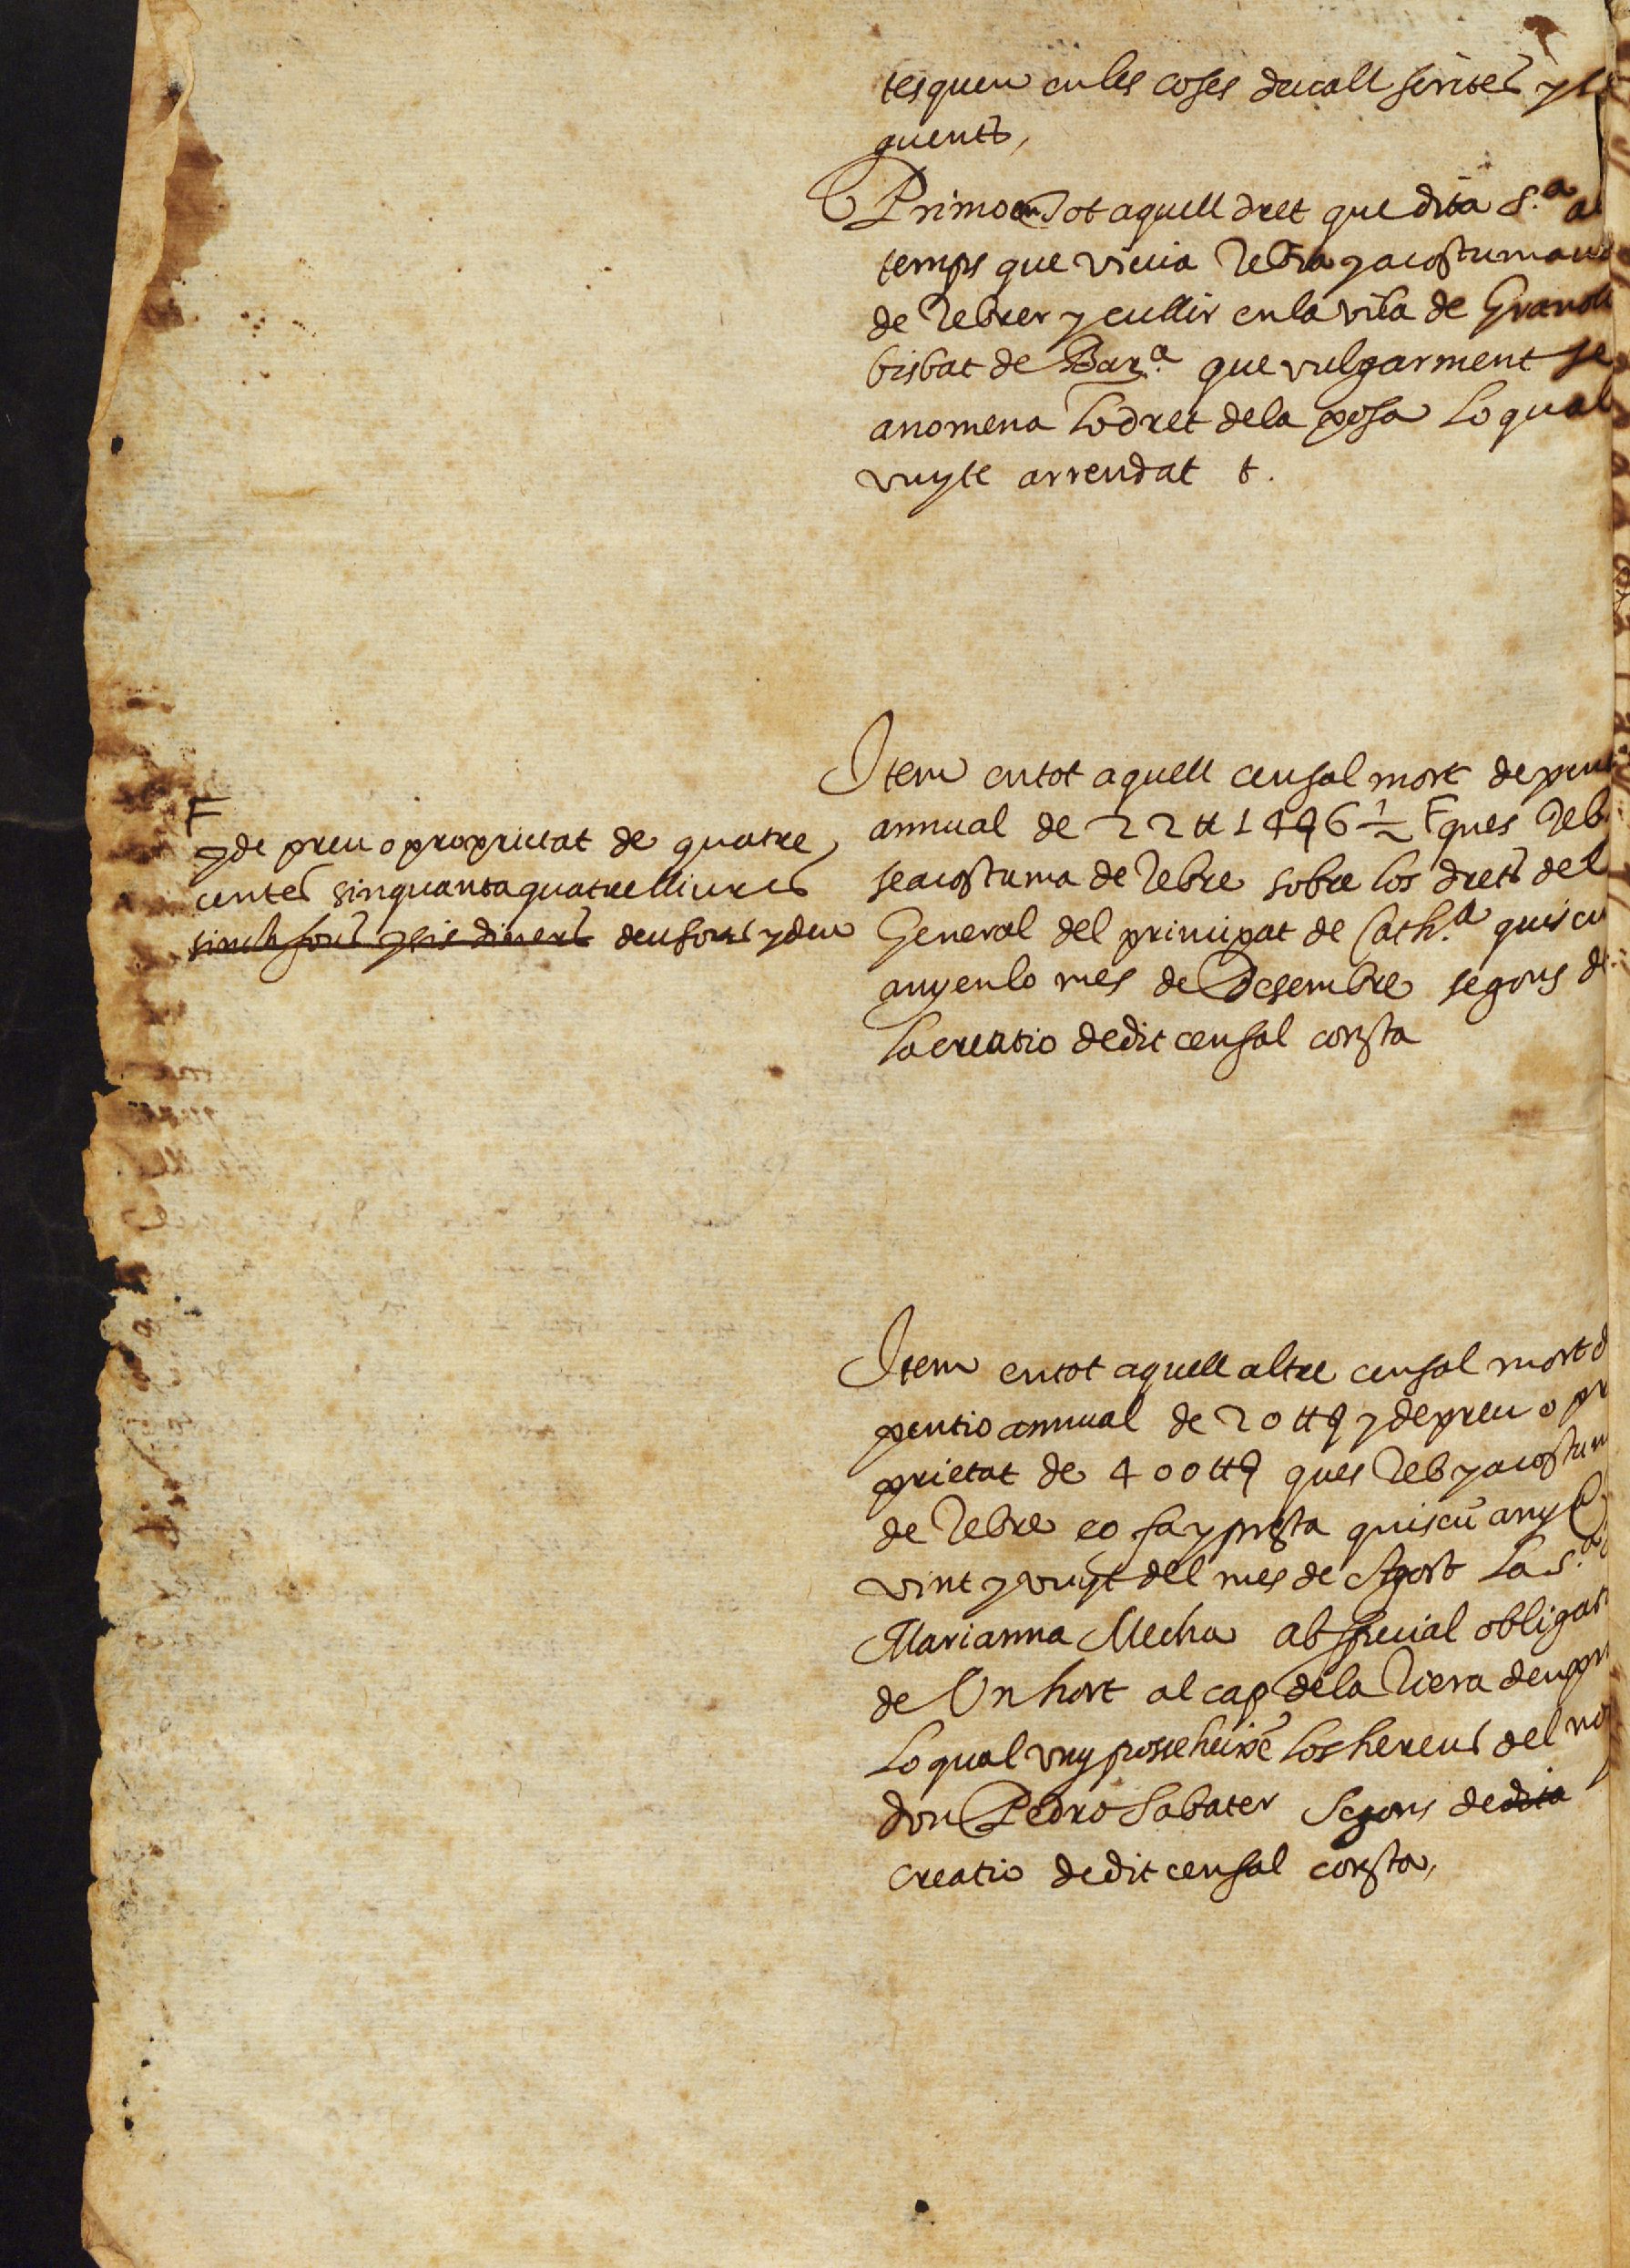 tesquen en les coses devall scrites y s
guents,
Primo en tot aquell dret que dita S.ª al
temps que vivia rebia y acostumava
de rebrer y cullir en la vila de Granoll
bisbat de Barª. que vulgarment se
anomena lo dret de la posa lo qual
vuy te arrendat t.
Item en tot aquell censal mort de pen
annual de 22 ₶ 14 9 6 ½ F ques reb
se acostuma de rebre sobre los drets del
General del principat de Cath.ª quiscu
any en lo mes de Desembre segons de
la creatio de dit censal consta
F
y de preu o proprietat de quatre
centes sinquanta quatre lliures
sinch sous y sis diners deu sous y deu
Item en tot aquell altre censal mort d
pentio annual de 20 ₶ 9 y de preu o pr
prietat de 400 ₶ 9 ques reb y acostum
de rebre eo fa y presta quiscũ any a
vint y vuyt del mes de Agost la S.ª
Marianna Mecha ab special obligati
de Un hort al cap de la riera den
lo qual vuy possehexẽ los hereus del no
don Pedro Sabater segons de dita
creatio de dit censal consta,